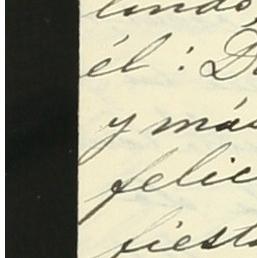 lindo,
él: D
y más
felic
fiest